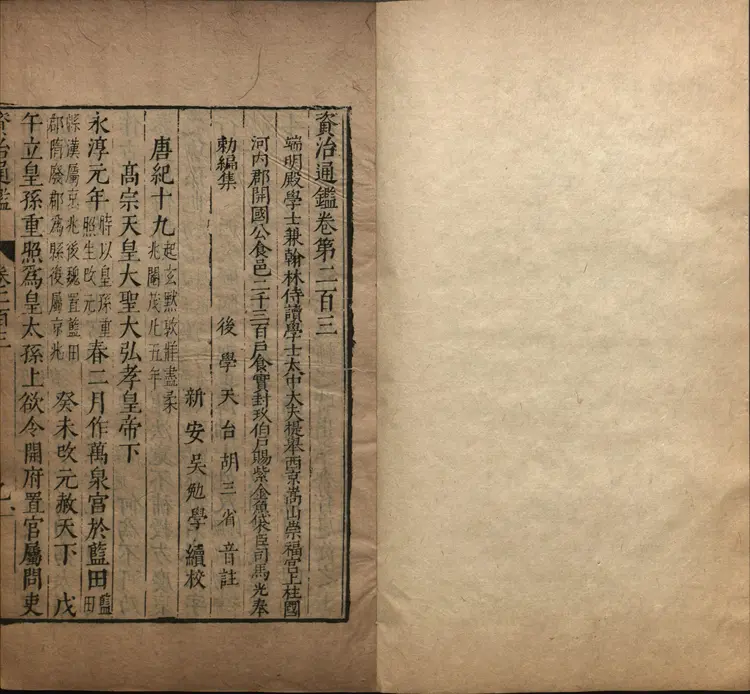 資治通鑑卷第二百三
端明殿學士兼翰林侍讀學士太中大夫提舉西京嵩山崇福宮上柱國
河內郡開國公食邑二千三百戶食實封玖伯戶賜紫金魚袋臣司馬光奉
勅編集
後學天台胡三省音註
新安吳勉學續校
唐紀十九起玄黓敦牂盡柔
兆閹茂凡五年
高宗天皇大聖大弘孝皇帝下
永淳元年時以皇孫重
照生改元春二月作萬泉宮於藍田藍
田
縣漢屬京兆後魏置藍田
郡隋廢郡為縣復屬京兆癸未改元赦天下戊
午立皇孫重照爲皇太孫上欲令開府置官屬問吏
資治通鑑
卷二百三